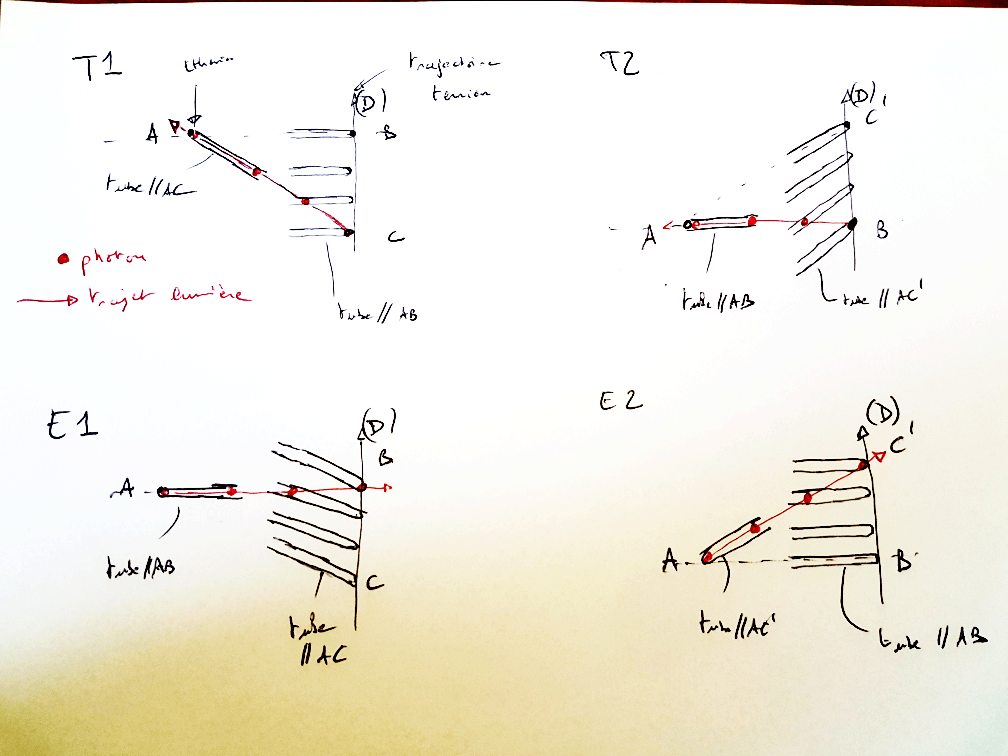 T1
trajectoire
terrien
(D)
A
B
tube // AC
C
photon
trajet lumière
tube // AB
T2
(D)
C'
A
B
tube // AB
tube // AC'
E1
(D)
B
A
tube // AB
C
tube
// AC
E2
(D)
C'
A
B
tube // AC'
tube // AB